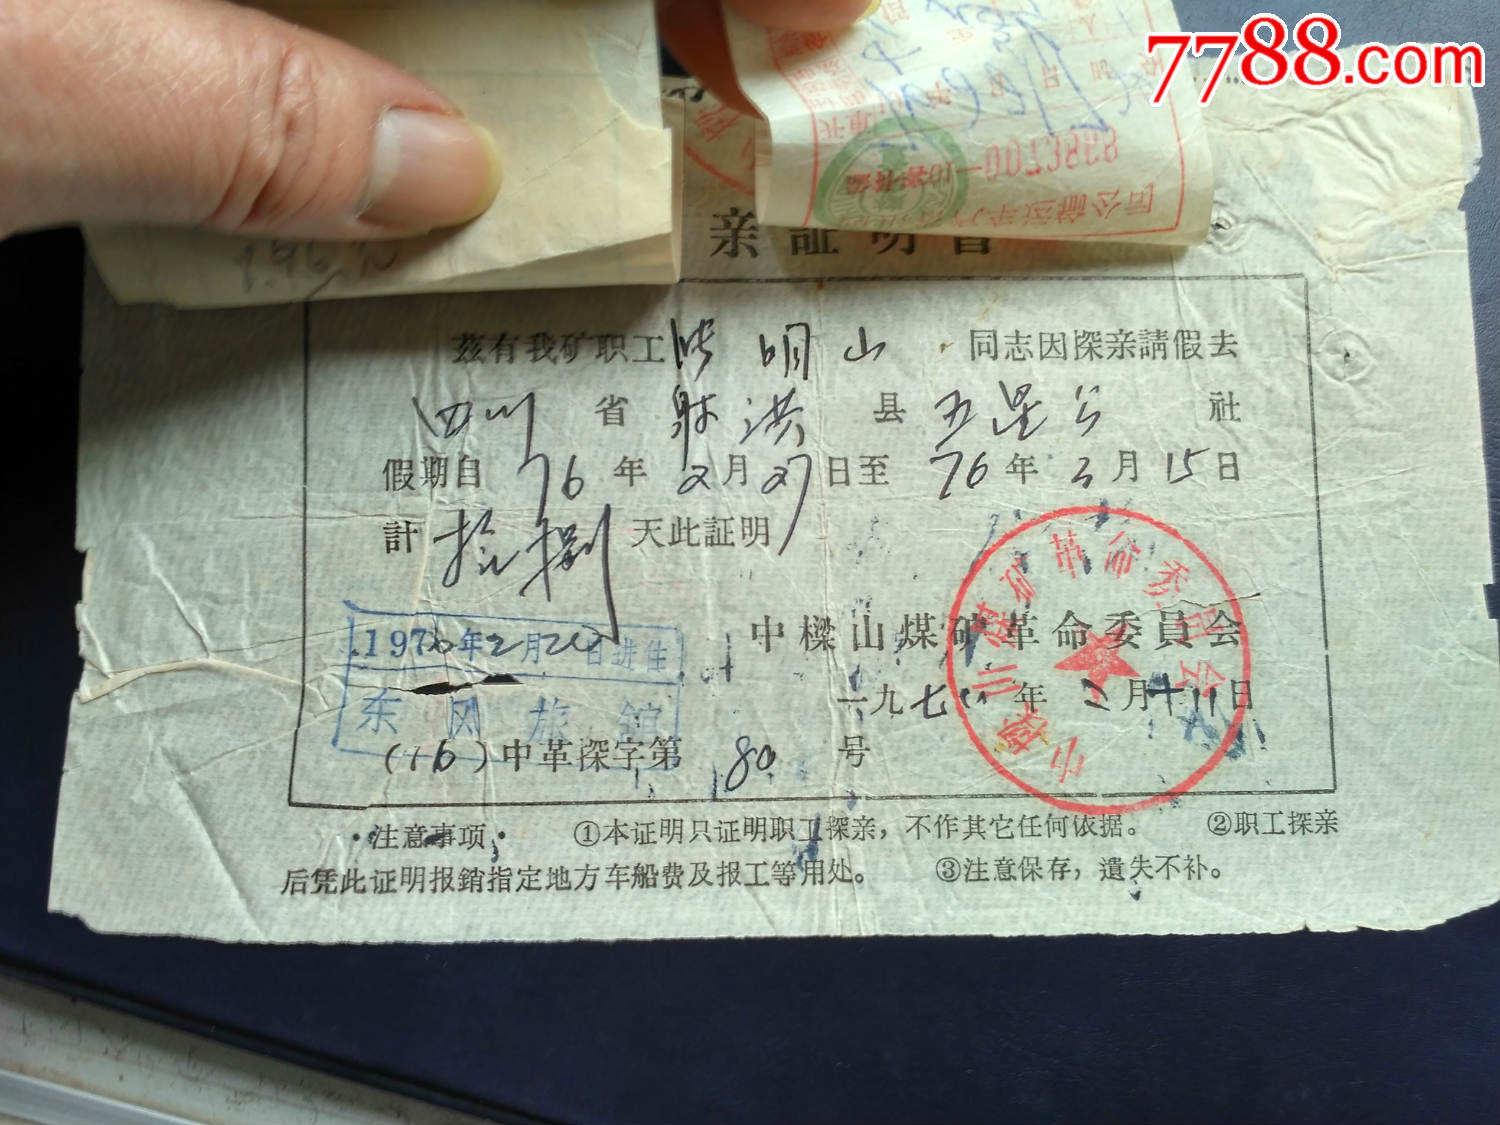 7788.com
1.96元
亲証明書
茲有我矿职工张明山同志因探亲請假去
四川省射洪县五星公社
假期自76年2月27日至76年3月15日
計拾捌天此証明
中樑山煤矿革命委員会
一九七六年二月十八日
(76)中革探字第80号
1976年2月28日进住
东风旅館
中樑山煤矿革命委员会
·注意事项· ①本证明只证明职工探亲，不作其它任何依据。 ②职工探亲
后凭此证明报銷指定地方车船费及报工等用处。 ③注意保存，遺失不补。